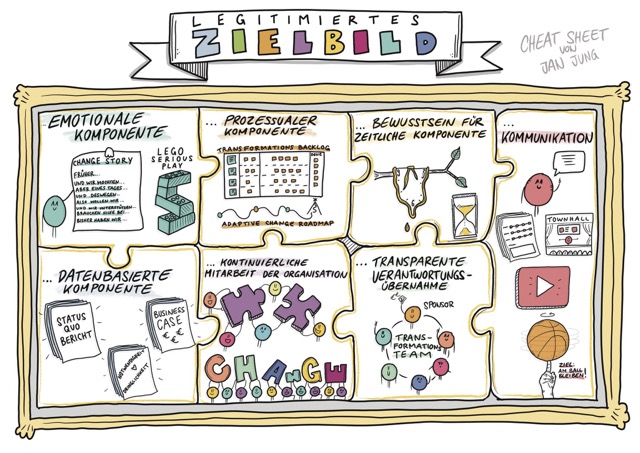 LEGITIMIERTES
ZIELBILD
CHEAT SHEET
VON
JAN JUNG
EMOTIONALE
KOMPONENTE
CHANGE STORY
FRÜHER...
UND WIR MÖCHTEN...
ABER EINES TAGES...
UND DESWEGEN
ALSO WOLLEN WIR...
UND WIR UNTERSTÜTZEN...
BRAUCHEN EURE BEI...
BISHER HABEN WIR...
LEGO
SERIOUS
PLAY
... PROZESSUALER
KOMPONENTE
TRANSFORMATIONS BACKLOG
DONE
ADAPTIVE CHANGE ROADMAP
... BEWUSSTSEIN FÜR
ZEITLICHE KOMPONENTE
... KOMMUNIKATION
TOWNHALL
ZIEL:
AM BALL
BLEIBEN!
... DATENBASIERTE
KOMPONENTE
STATUS
QUO
BERICHT
BUSINESS
CASE
€ €
€
... KONTINUIERLICHE
MITARBEIT DER ORGANISATION
CHANGE
... TRANSPARENTE
VERANTWORTUNGS-
ÜBERNAHME
SPONSOR
TRANS-
FORMATIONS
TEAM